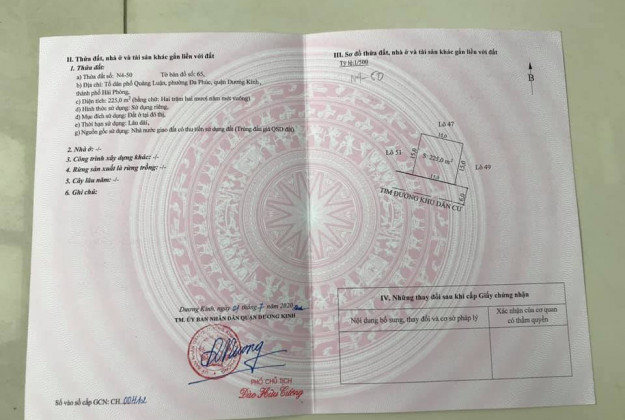 II. Thửa đất, nhà ở và tài sản khác gắn liền với đất
1. Thửa đất:
a) Thửa đất số: N4-50 Tờ bản đồ số: 03,
b) Địa chỉ: Tổ dân phố Quảng Luận, phường Đa Phúc, quận Dương Kinh,
thành phố Hải Phòng,
c) Diện tích: 225,0 m² (Bằng chữ: Hai trăm hai mươi năm mét vuông)
d) Hình thức sử dụng: Sử dụng riêng,
đ) Mục đích sử dụng: Đất ở tại đô thị,
e) Thời hạn sử dụng: Lâu dài,
g) Nguồn gốc sử dụng: Nhà nước giao đất có thu tiền sử dụng đất (Trúng đấu giá QSD đất).
2. Nhà ở: -/-
3. Công trình xây dựng khác: -/-
4. Rừng sản xuất là rừng trồng: -/-
5. Cây lâu năm: -/-
6. Ghi chú:
Dương Kinh, ngày tháng 7 năm 2020
TM. ỦY BAN NHÂN DÂN QUẬN DƯƠNG KINH
PHÓ CHỦ TỊCH
Đào Hữu Cường
Số vào sổ cấp GCN: CH
III. Sơ đồ thửa đất, nhà ở và tài sản khác gắn liền với đất
Tỷ lệ:1/500
N4-50
B
Lô 47
15,0
Lô 51
15,0
S: 225,0 m²
15,0
Lô 49
15,0
6,0
TIM ĐƯỜNG KHU DÂN CƯ
IV. Những thay đổi sau khi cấp Giấy chứng nhận
Nội dung bổ sung, thay đổi và cơ sở pháp lý
Xác nhận của cơ quan
có thẩm quyền